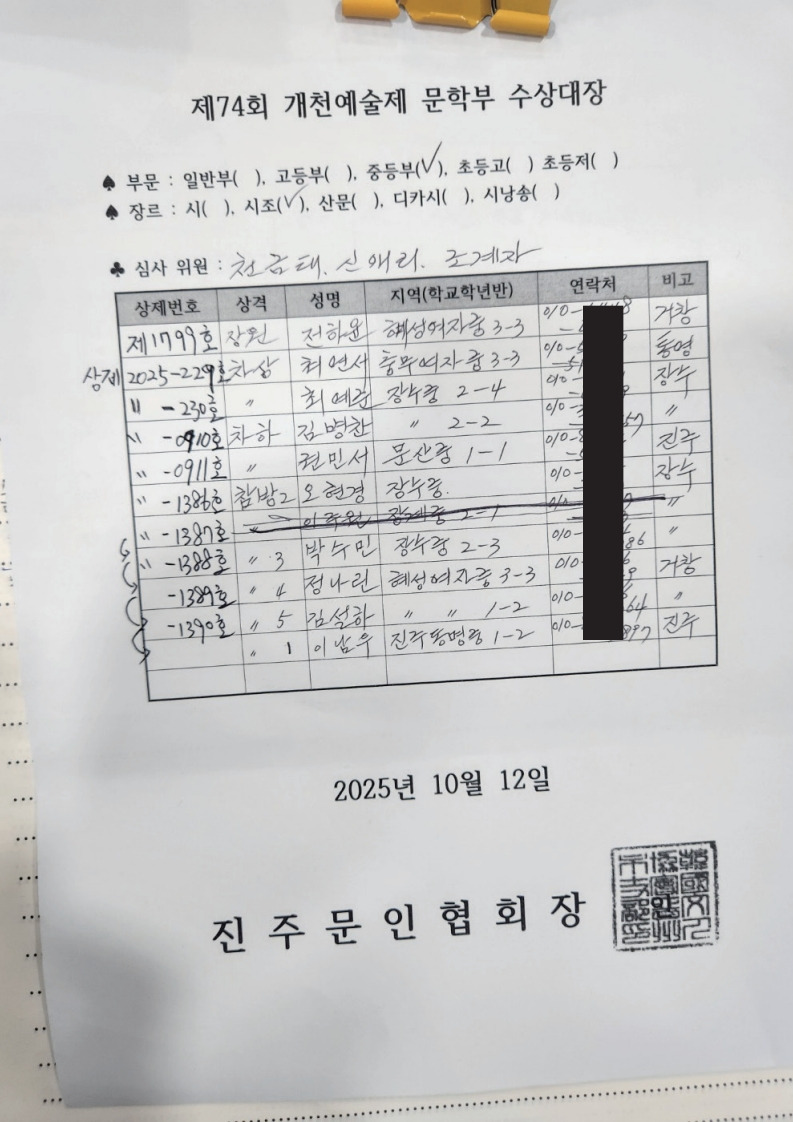 제74회 개천예술제 문학부 수상대장
♠ 부문 : 일반부( ), 고등부( ), 중등부(✓), 초등고( ) 초등저( )
♠ 장르 : 시( ), 시조(✓), 산문( ), 디카시( ), 시낭송( )
♣ 심사 위원 : 천금태. 신애리. 조계자
상제번호 상격 성명 지역(학교학년반) 연락처 비고
제1799호 장원 전하윤 혜성여자중 3-3 010- 거창
상제 2025-229호 차상 최연서 충무여자중 3-3 010- 통영
〃 -230호 〃 최예준 장수중 2-4 010- 장수
〃 -0910호 차하 김병찬 〃 2-2 010- 〃
〃 -0911호 〃 권민서 문산중 1-1 010- 진주
〃 -1386호 참방2 오현경 장수중. 010- 장수
〃 -1387호 〃 장계중 2-1 010- 〃
〃 -1388호 〃 3 박수민 장수중 2-3 010- 86 〃
-1389호 〃 4 정나린 혜성여자중 3-3 010- 거창
-1390호 〃 5 김설하 〃 〃 1-2 010- 64 〃
〃 1 이남우 진주동명중 1-2 010- 897 진주
2025년 10월 12일
진주문인협회장 인